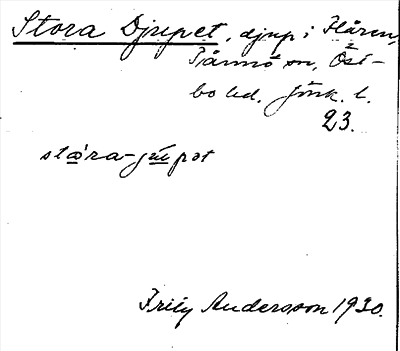 Stora Djupet, djup i Flåren,
Tånnö sn, Öst-
bo hd. Jönk. l.
23.
stora-júpət
Frity Andersson 1930.